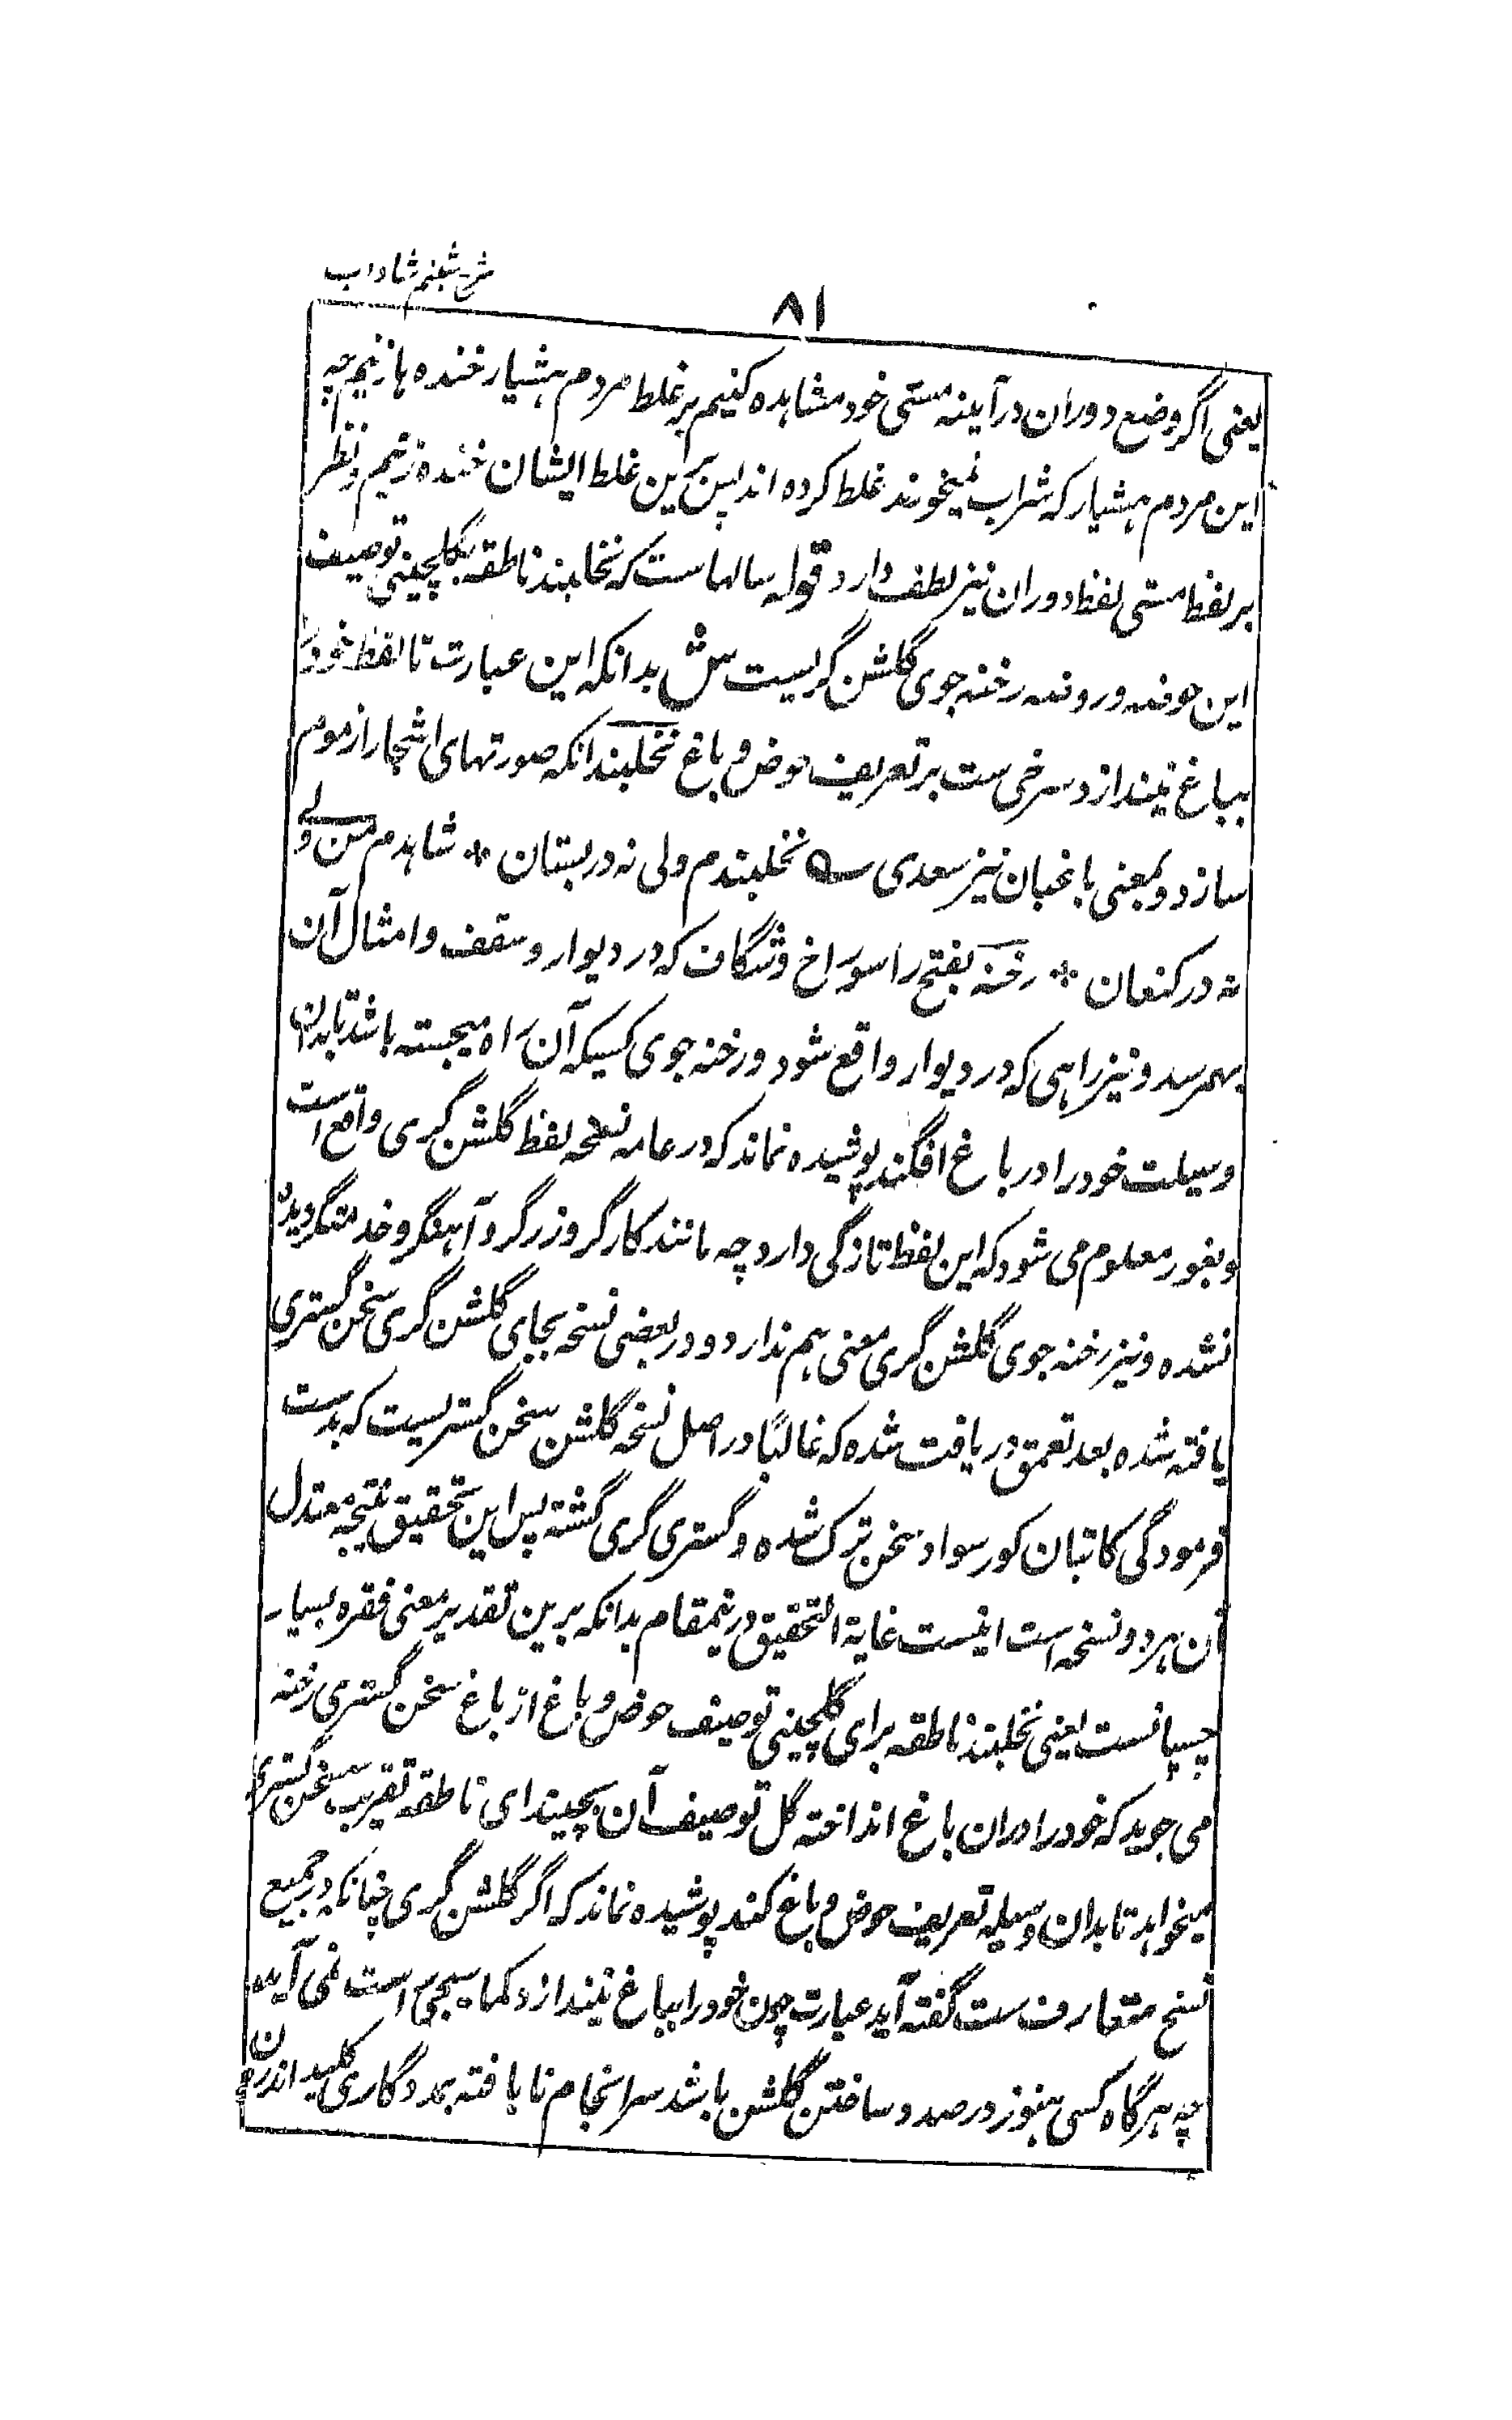 شرح شبنم شاداب
۸۱
یعنی اگر وضع دوران در آیینه مستی خود مشاهده کنیم بر غلط مردم هشیار خنده ها زنیم چه
این مردم هشیار که شراب نمیخورند غلط کرده اند پس برین غلط ایشان خنده زنیم و نظر
بر لفظ مستی لفظ دوران نیز لطف دارد قوله سالهاست که نخلبند ناطقه بگلچینی توصیف
این حوض و روضه رخنه جوی گلشن گریست ش بدانکه این عبارت تا لفظ خود را
بباغ نیندازد سرخی ست بر تعریف حوض و باغ نخلبند انکه صورتهای اشجار از موم
سازد و بمعنی باغبان نیز سعدی نخلبندم ولی نه در بستان * شاهدم من ولی
نه در کنعان * رخنه بفتح را سوراخ و شگاف که در دیوار و سقف و امثال آن
بهمرسد و نیز راهی که در دیوار واقع شود و رخنه جوی کسیکه آن راه میجسته باشد تا بدان
وسیلت خود را در باغ افگند پوشیده نماند که در عامه نسخه لفظ گلشن گری واقع است
و بغور معلوم می شود که این لفظ تازگی دارد چه مانند کارگر و زرگر و آهنگر و خدمتگر دیده
نشده و نیز رخنه جوی گلشن گری معنی هم ندارد و در بعضی نسخه بجای گلشن گری سخن گستری
یافته شده بعد تعمق دریافت شده که غالبًا در اصل نسخه گلشن سخن گستریست که بدست
فرمودگی کاتبان کور سواد سخن ترک شده و گستری گری گشته پس این تحقیق نتیجه معتدل
آن هر دو نسخه است اینست غایة التحقیق درینمقام بدانکه برین تقدیر معنی فقره بسیار
چسپانست یعنی نخلبند ناطقه برای گلچینی توصیف حوض و باغ از باغ سخن گستری رخنه
می جوید که خود را دران باغ انداخته گل توصیف آن بچیند ای ناطقه تقریب سخن گستری
میخواهد تا بدان وسیله تعریف حوض و باغ کند پوشیده نماند که اگر گلشن گری چنانکه در جمیع
نسخ متعارف ست گفته آید عبارت چون خود را بباغ نیندازد کما سیجی است نمی آید
چه هرگاه کسی هنوز در صدد ساختن گلشن باشد سرانجام نا یافته بمددگاری کلید اندرون